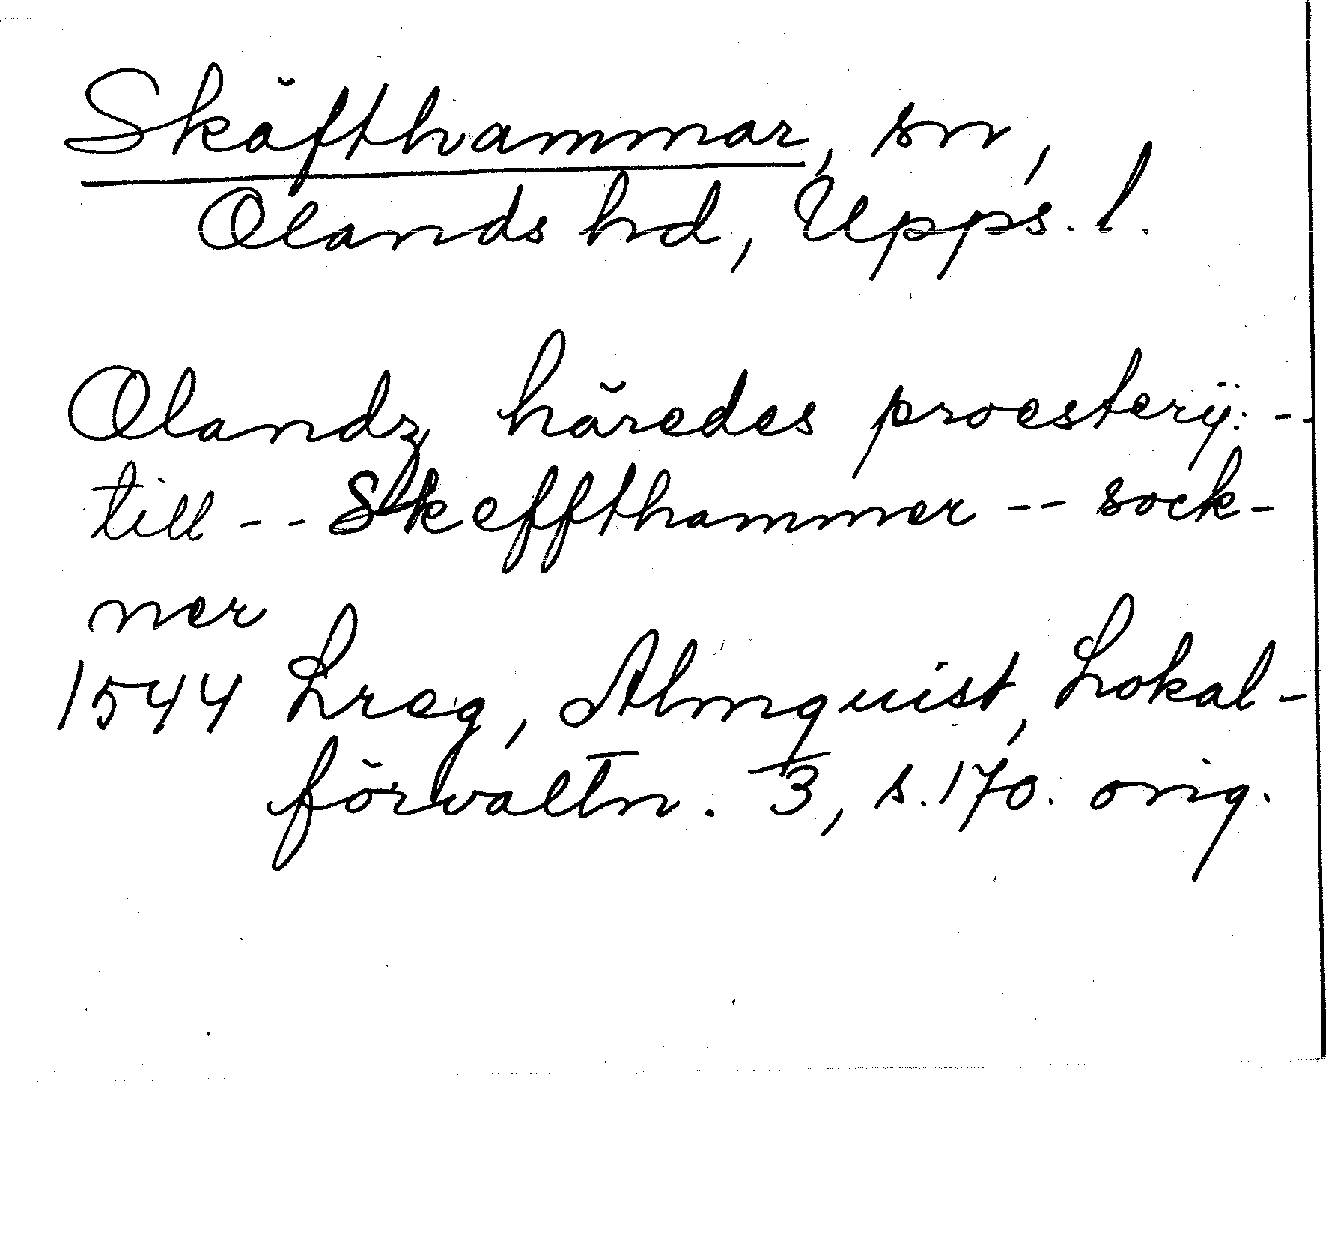 Skäfthammar, sn,
Olands hd, Upps. l.
Olandz häredes proesterÿ: --
till -- Skeffthammer -- sock-
ner
1544 Lreg, Almquist, Lokal-
förvaltn. 3, s. 170. orig.